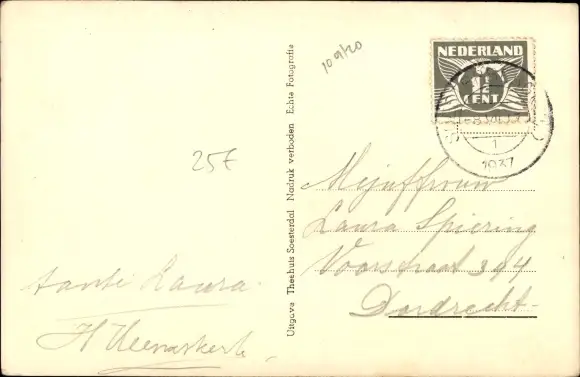 tante Laura.
H
25€
109/20
Uitgave Theehuis Soesterdal Nadruk verboden Echte Fotografie
NEDERLAND
1½
CENT
1
1937
Mejuffrouw
Laura Spiering
Voorstraat 394
Dordrecht